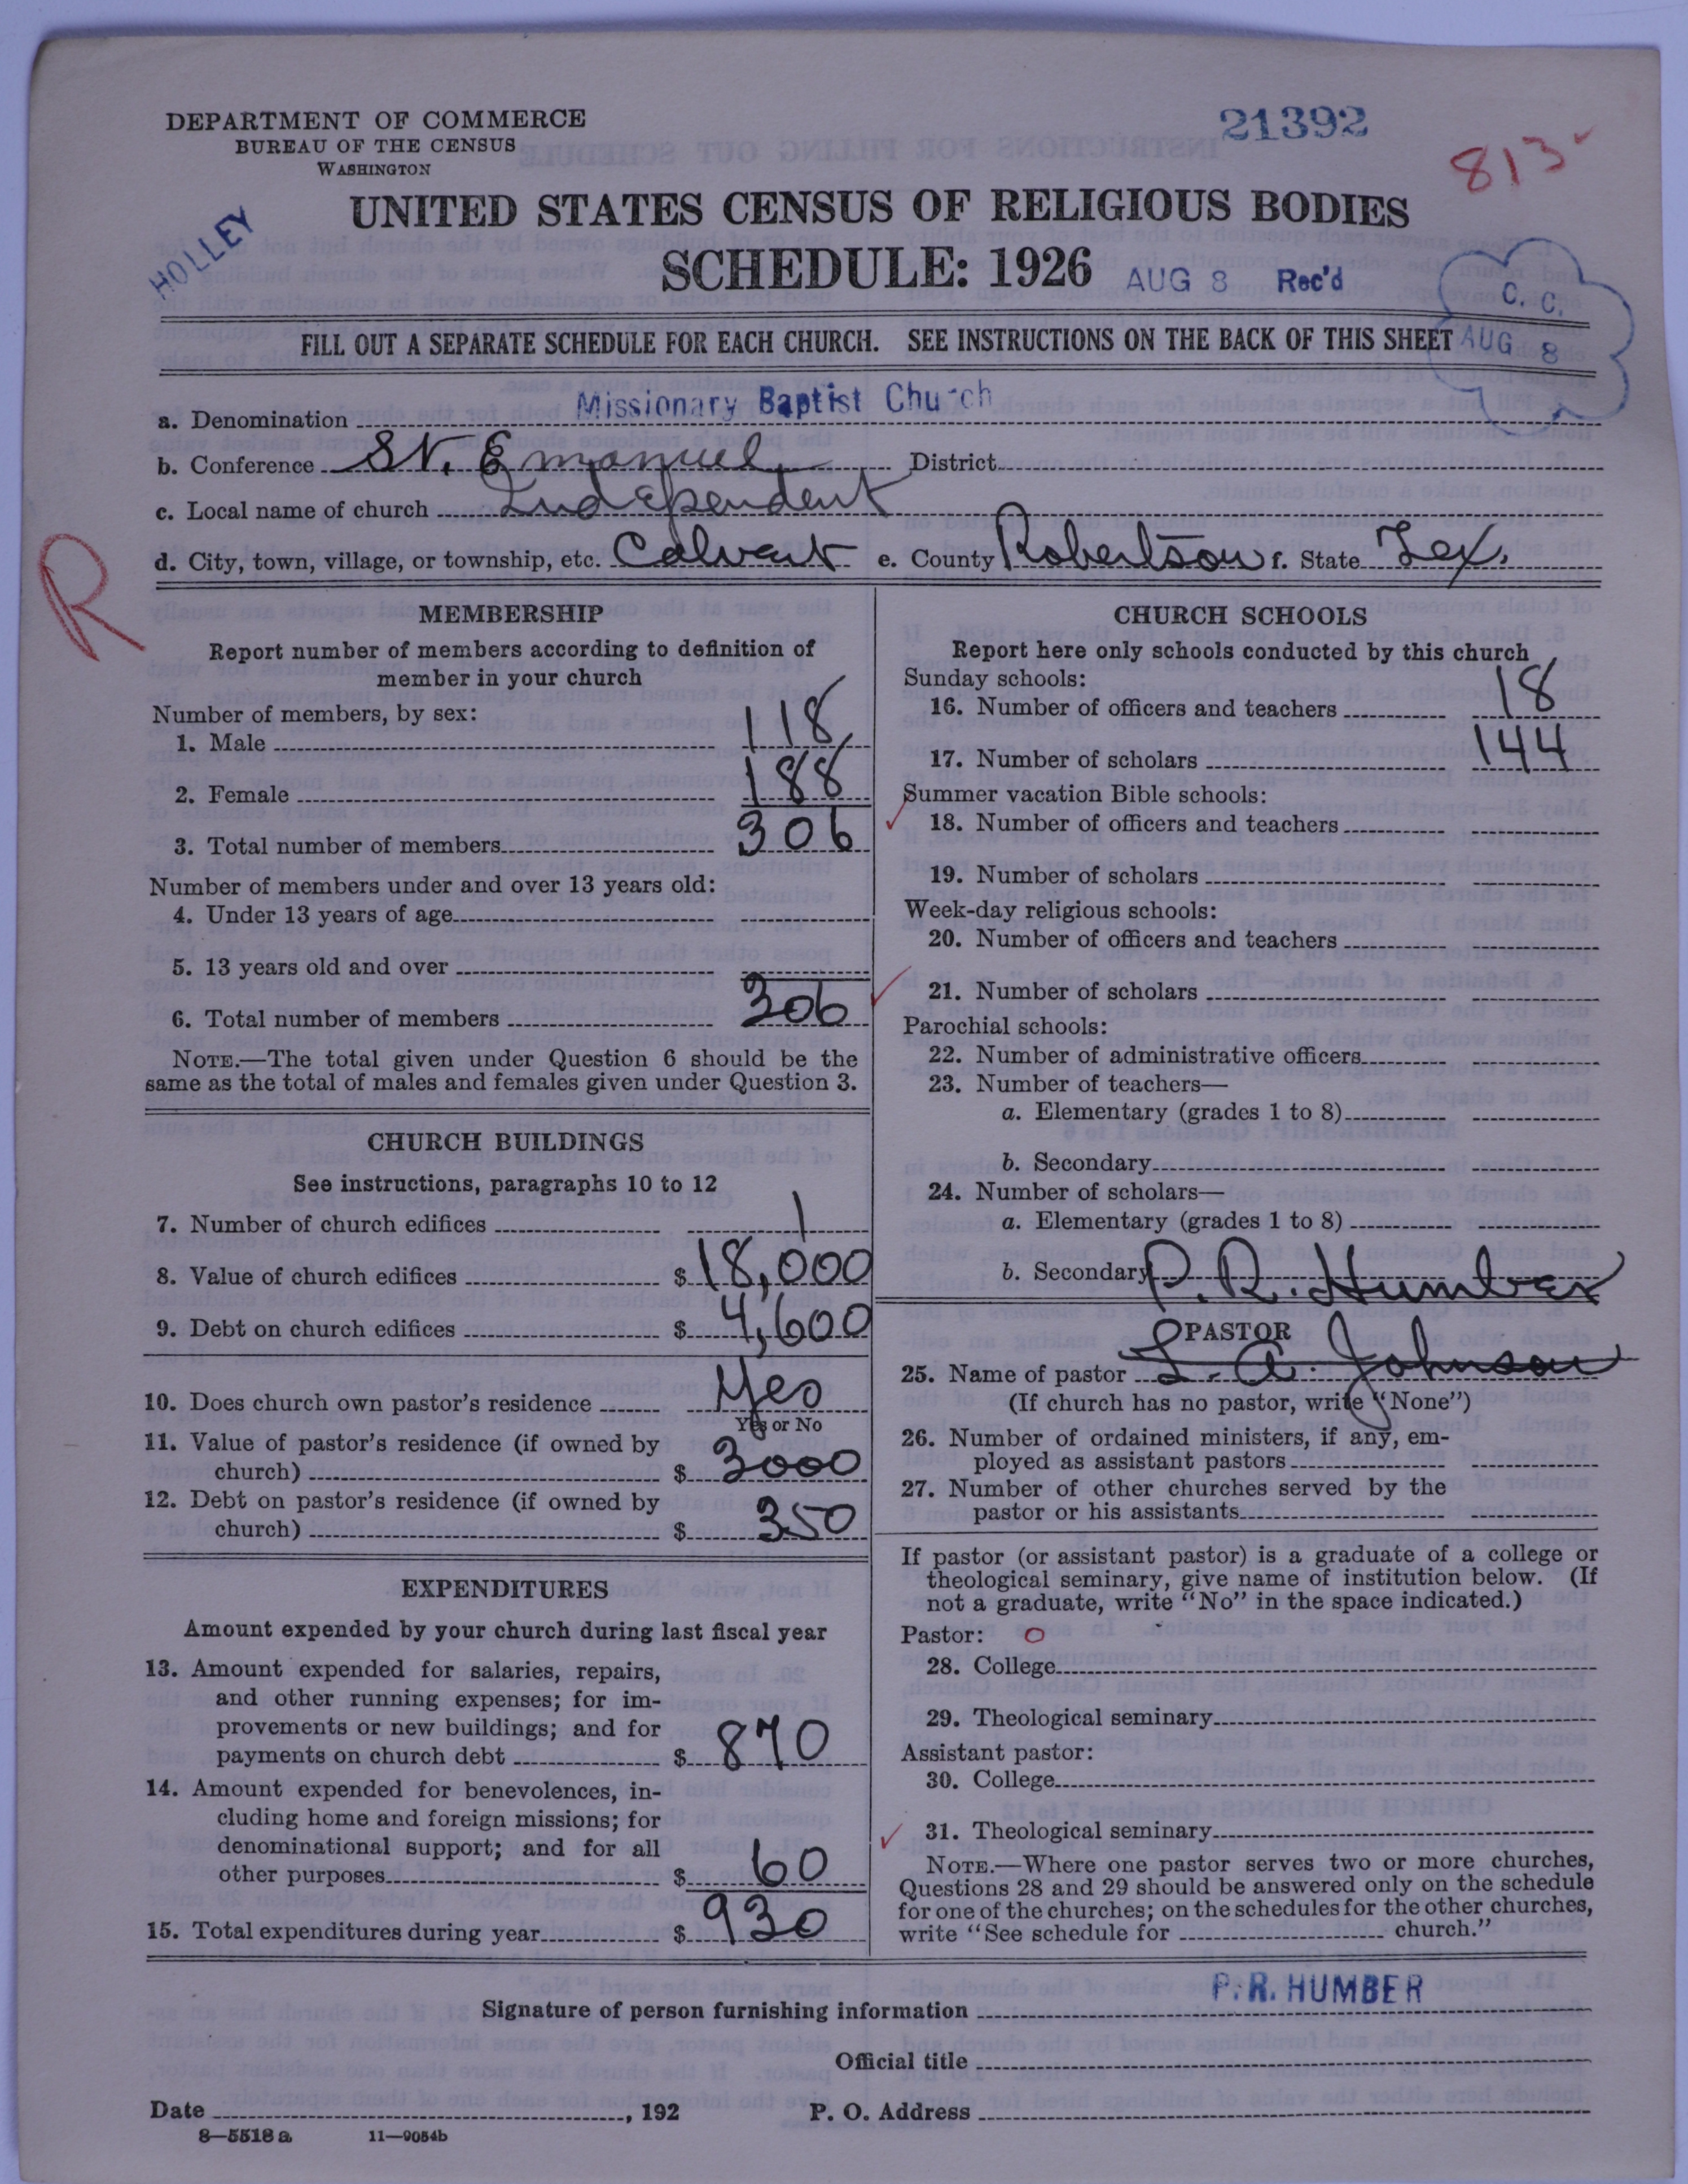 DEPARTMENT OF COMMERCE
BUREAU OF THE CENSUS
WASHINGTON
21392
813
HOLLEY
UNITED STATES CENSUS OF RELIGIOUS BODIES
SCHEDULE: 1926
AUG 8 Rec'd
C. C.
AUG 8
FILL OUT A SEPARATE SCHEDULE FOR EACH CHURCH. SEE INSTRUCTIONS ON THE BACK OF THIS SHEET
a. Denomination Missionary Baptist Church
b. Conference St. Emanuel District
c. Local name of church Independent
d. City, town, village, or township, etc. Calvert e. County Robertson f. State Tex.
R
MEMBERSHIP
Report number of members according to definition of
member in your church
Number of members, by sex:
1. Male 118
2. Female 188
3. Total number of members 306
Number of members under and over 13 years old:
4. Under 13 years of age
5. 13 years old and over
6. Total number of members 306
NOTE.—The total given under Question 6 should be the
same as the total of males and females given under Question 3.
CHURCH BUILDINGS
See instructions, paragraphs 10 to 12
7. Number of church edifices 1
8. Value of church edifices $ 18,000
9. Debt on church edifices $ 4,600
10. Does church own pastor's residence Yes
Yes or No
11. Value of pastor's residence (if owned by
church) $ 3000
12. Debt on pastor's residence (if owned by
church) $ 350
EXPENDITURES
Amount expended by your church during last fiscal year
13. Amount expended for salaries, repairs,
and other running expenses; for im-
provements or new buildings; and for
payments on church debt $ 870
14. Amount expended for benevolences, in-
cluding home and foreign missions; for
denominational support; and for all
other purposes $ 60
15. Total expenditures during year $ 930
CHURCH SCHOOLS
Report here only schools conducted by this church
Sunday schools:
16. Number of officers and teachers 18
17. Number of scholars 144
Summer vacation Bible schools:
18. Number of officers and teachers
19. Number of scholars
Week-day religious schools:
20. Number of officers and teachers
21. Number of scholars
Parochial schools:
22. Number of administrative officers
23. Number of teachers—
a. Elementary (grades 1 to 8)
b. Secondary
24. Number of scholars—
a. Elementary (grades 1 to 8)
b. Secondary
P. R. Humber
PASTOR
25. Name of pastor L. A. Johnson
(If church has no pastor, write "None")
26. Number of ordained ministers, if any, em-
ployed as assistant pastors
27. Number of other churches served by the
pastor or his assistants
If pastor (or assistant pastor) is a graduate of a college or
theological seminary, give name of institution below. (If
not a graduate, write "No" in the space indicated.)
Pastor: O
28. College
29. Theological seminary
Assistant pastor:
30. College
31. Theological seminary
NOTE.—Where one pastor serves two or more churches,
Questions 28 and 29 should be answered only on the schedule
for one of the churches; on the schedules for the other churches,
write "See schedule for church."
Signature of person furnishing information P. R. HUMBER
Official title
Date , 192 P. O. Address
8—5518 a 11—9054b